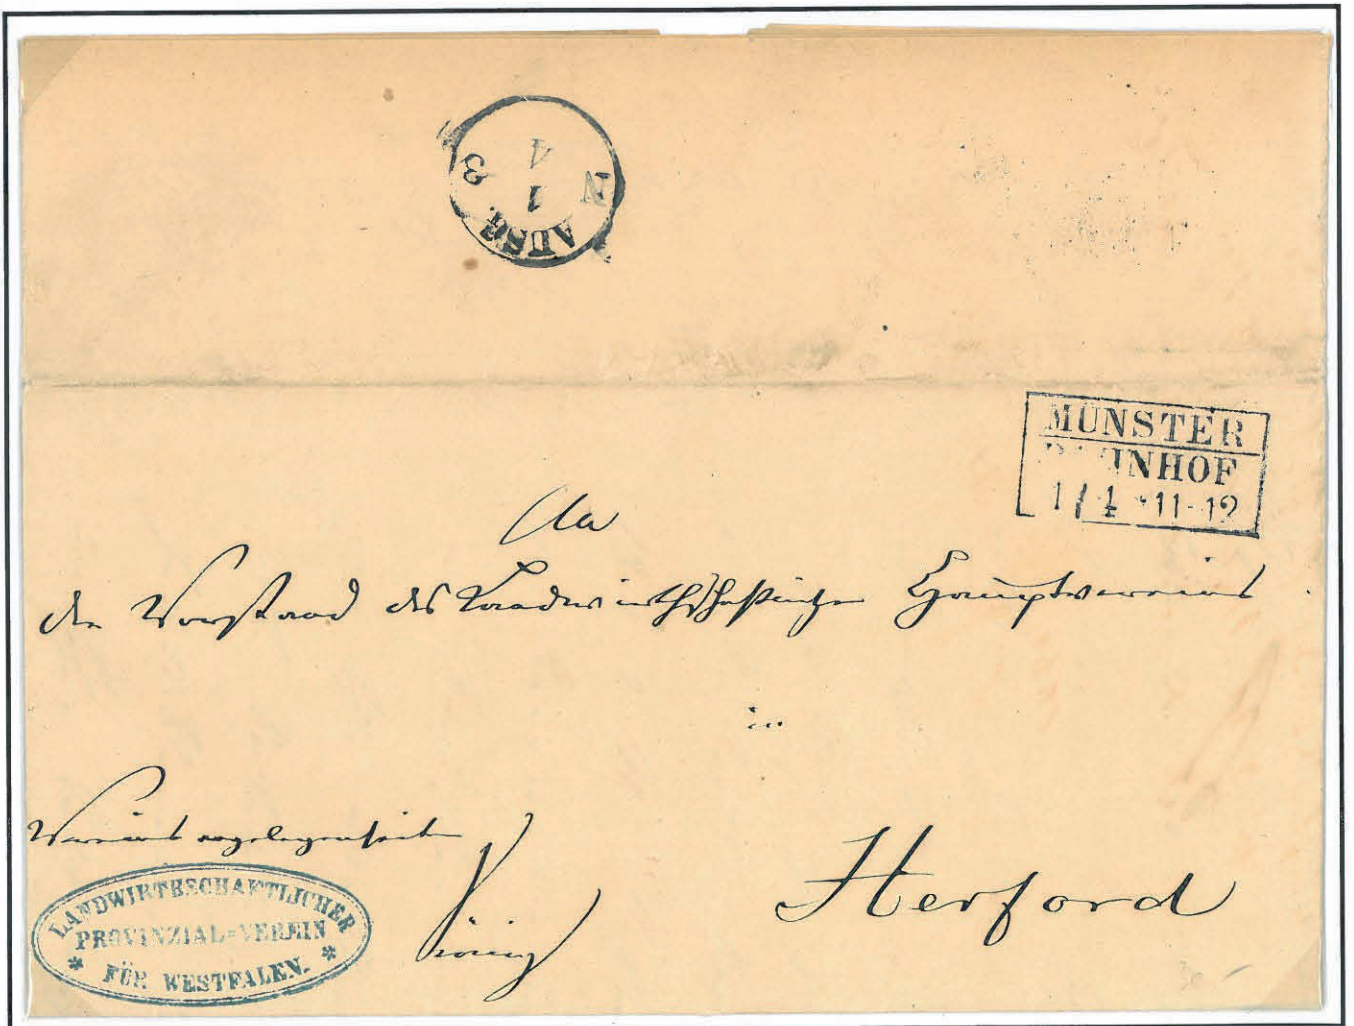 AUSG. 3
1
4
N
MÜNSTER
BAHNHOF
1/4 * 11-12
An
den Vorstand des Landwirthschaftlichen Hauptvereins
in
Vereinsangelegenheiten
Herford
König
LANDWIRTHSCHAFTLICHER
PROVINZIAL=VEREIN
* FÜR WESTFALEN. *